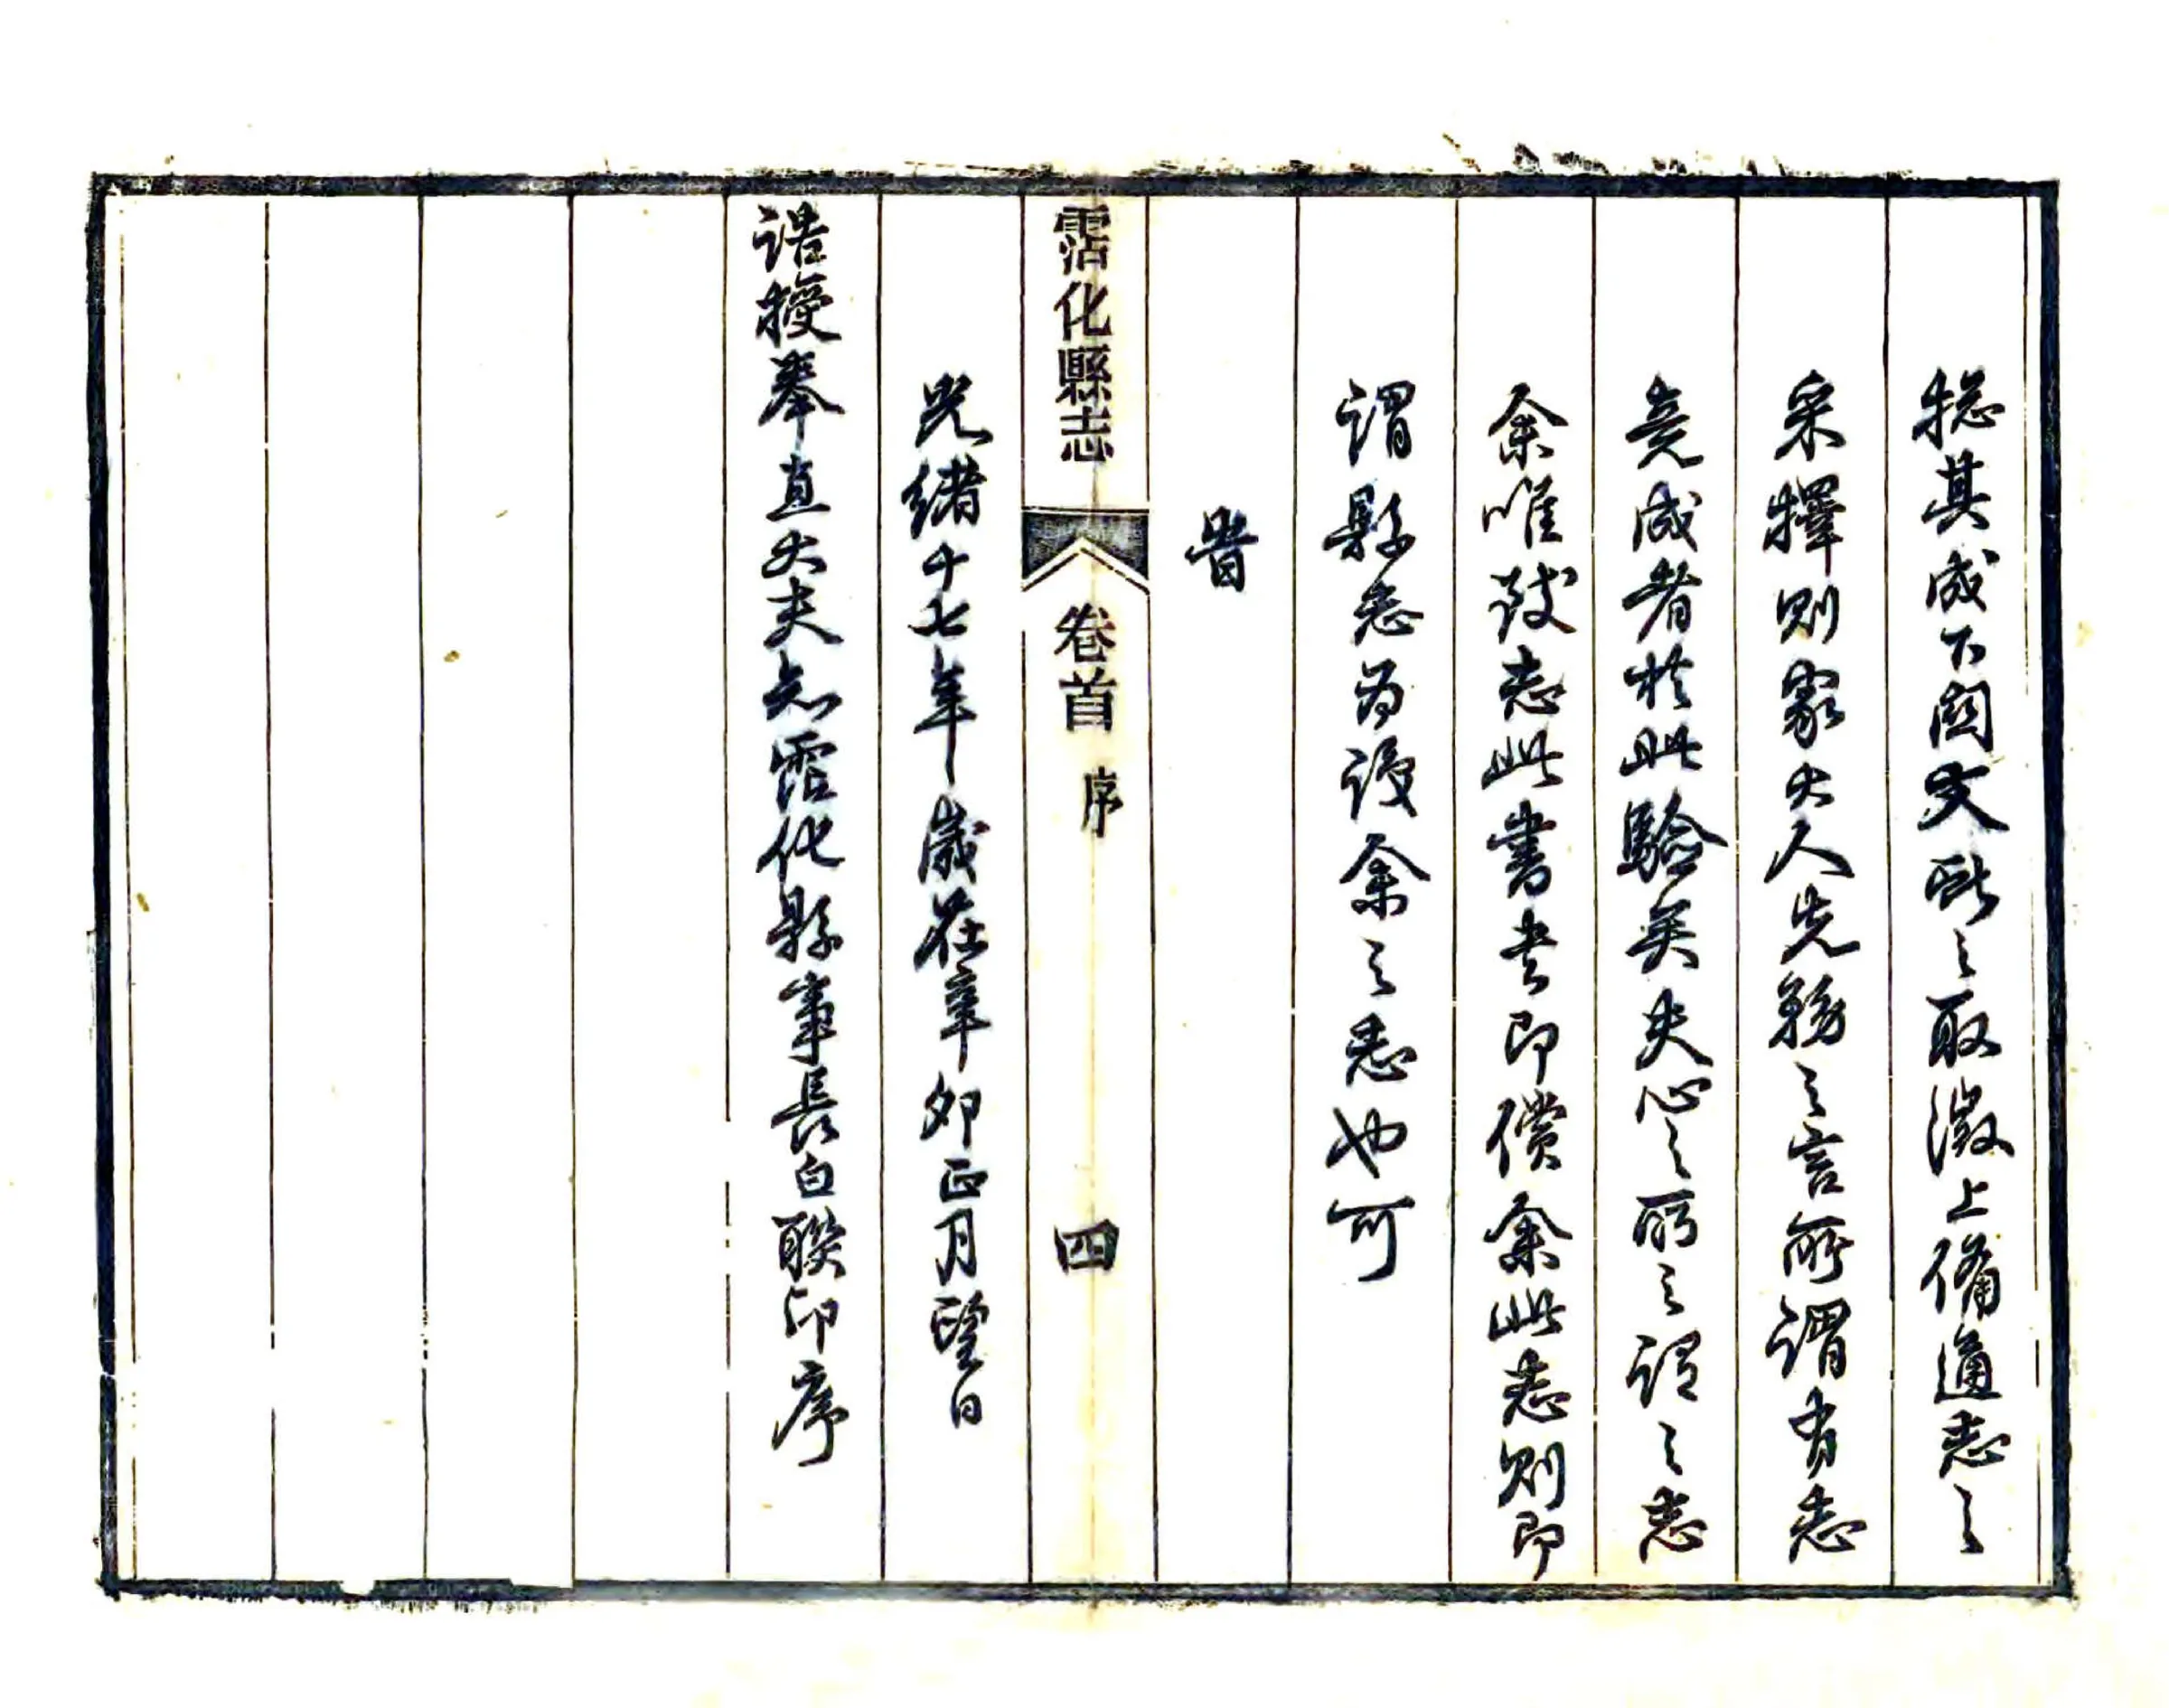 捴其成下關文獻之取徵上備通志之
采擇則家大人先務之言所謂有志
竟成者於此驗矣夫心之所之謂之志
余唯致志此書書即償余此志則即
謂縣志為設余之志也可
旹
霑化縣志 卷首 序 四
光緒十七年歲在辛卯正月望日
誥授奉直大夫知霑化縣事長白聯印序